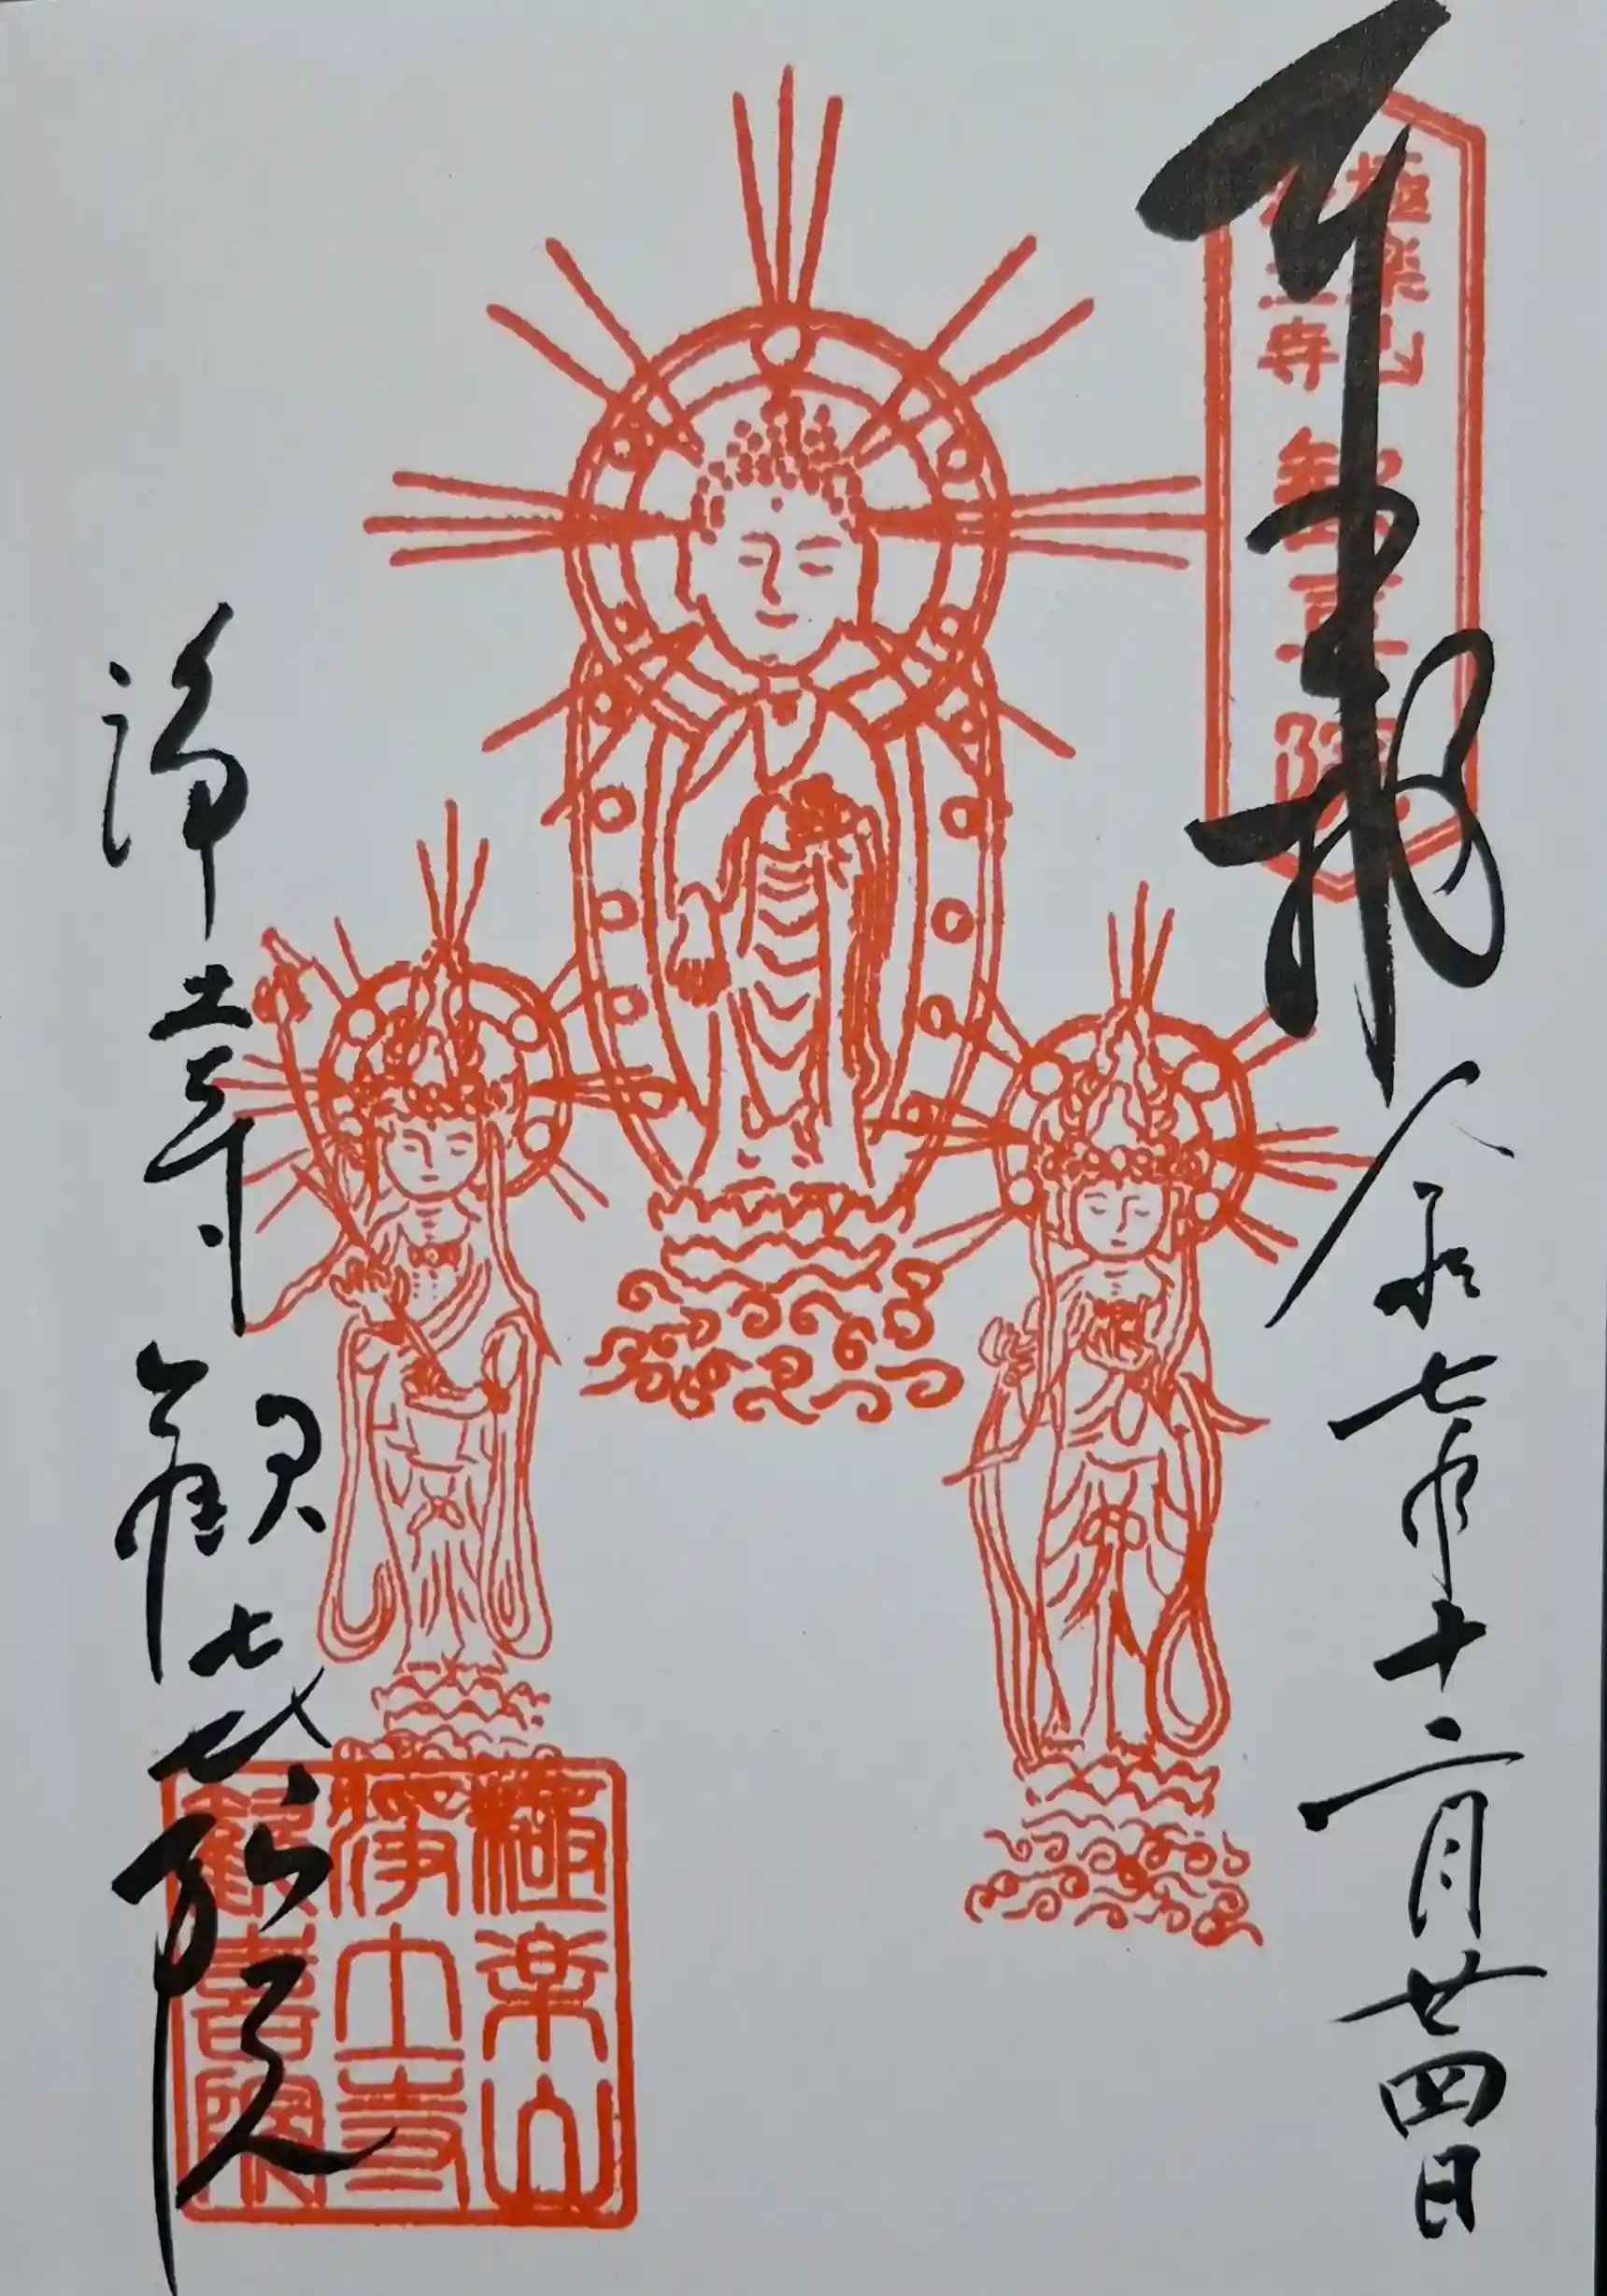 奉拝
令和七年十二月廿四日
極楽山
浄土寺 歓喜院
浄土寺
歓喜院
極楽山
浄土寺
歓喜院